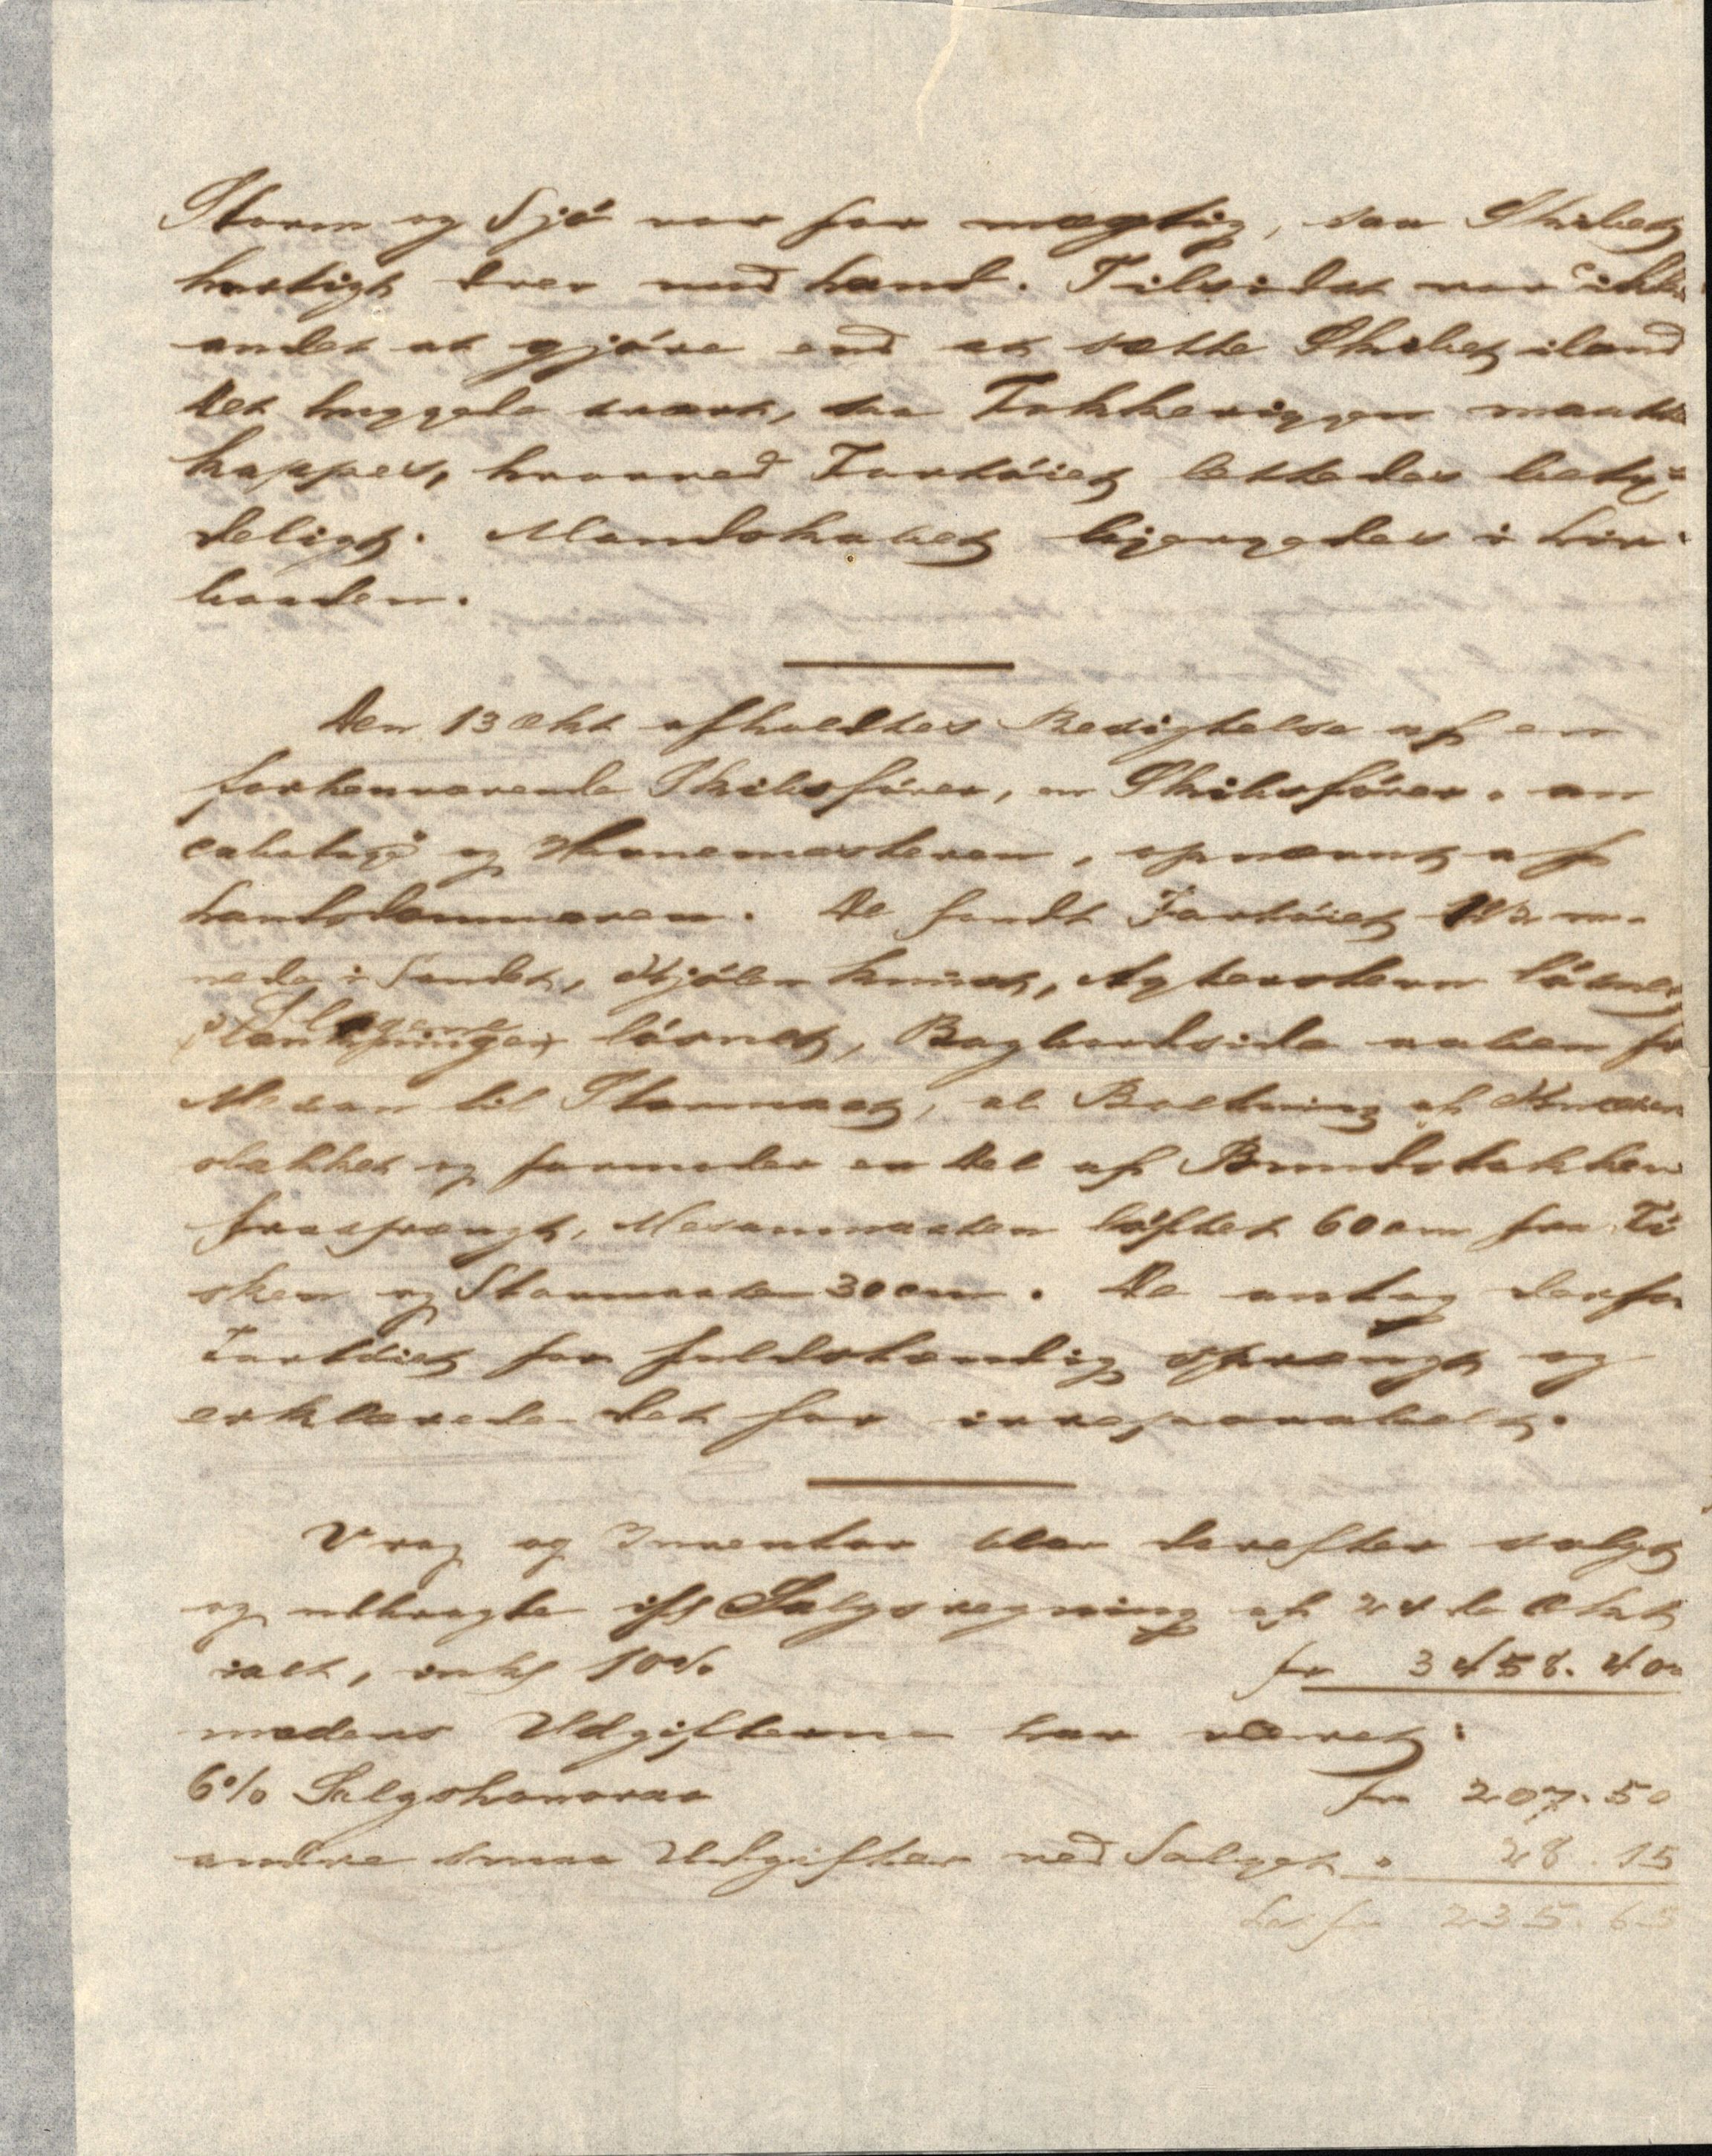 Storm og Sjö var for mægtig, saa Skibet
hurtigt drev mod Land. Tilsidst var ikke
andet at gjöre end at sætte Skibet iland
Det huggede svært, saa Fokkeriggen maatte
kappes, hvorved Fartöiet lettedes bety=
deligt. Mandskabet bjergedes i Liv=
baaden.
Den 13 Okt afholdtes Besigtelse af en
forhenværende Skibsförer, en Skibsförer, en
og Havnemesteren, opnævnt af
Landsdommeren. De fandt Fartöiet 1 1/2 m.
nede i Sandet, Kjölen knust, Agterstevn lösnet
lösnet, Bagbordside aaben fr
Mesan til Stormast, al Boltning af Knæer
slækket og formoder en Del af Bundstokken
frasprængt, Mesanmasten löftet 60 cm fra Fi
sken og Stormasten 30 cm. De antog derfor
Fartöiet for fuldstændig sprængt og
erklærede det for irreparabelt.
Vrag og Inventar blev derefter solgt
og udbragte ifl Salgsregning af 24de Okt
ialt, inkl 10% fr 3458.40
medens Udgifterne har været:
6% Salgshonorar fr 207.50
andre smaa Udgifter ved Salget " 28.15
fr 235.65